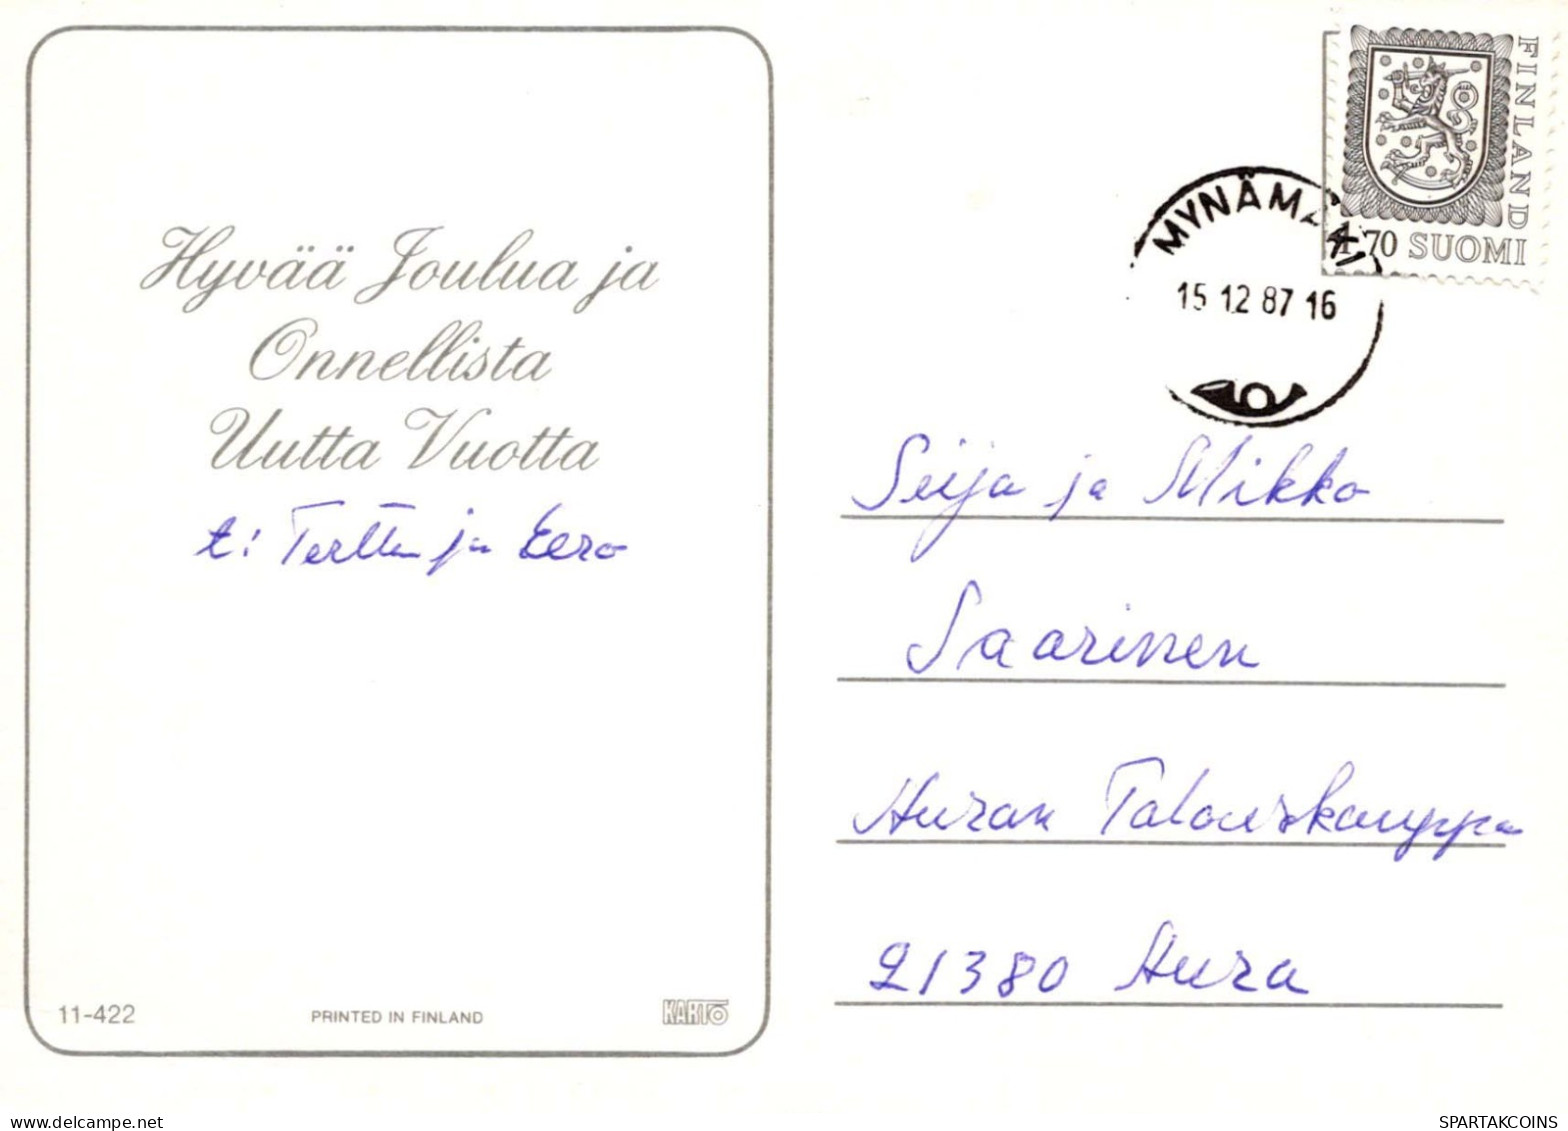 Hyvää Joulua ja
Onnellista
Uutta Vuotta
t: Terttu ja Eero
11-422
PRINTED IN FINLAND
KARTO
FINLAND
1,70 SUOMI
MYNÄMÄKI
15 12 87 16
Seija ja Mikko
Saarinen
Auran Talouskauppa
21380 Aura
https://www.welcometothefamily.com
SPARTAKCOINS